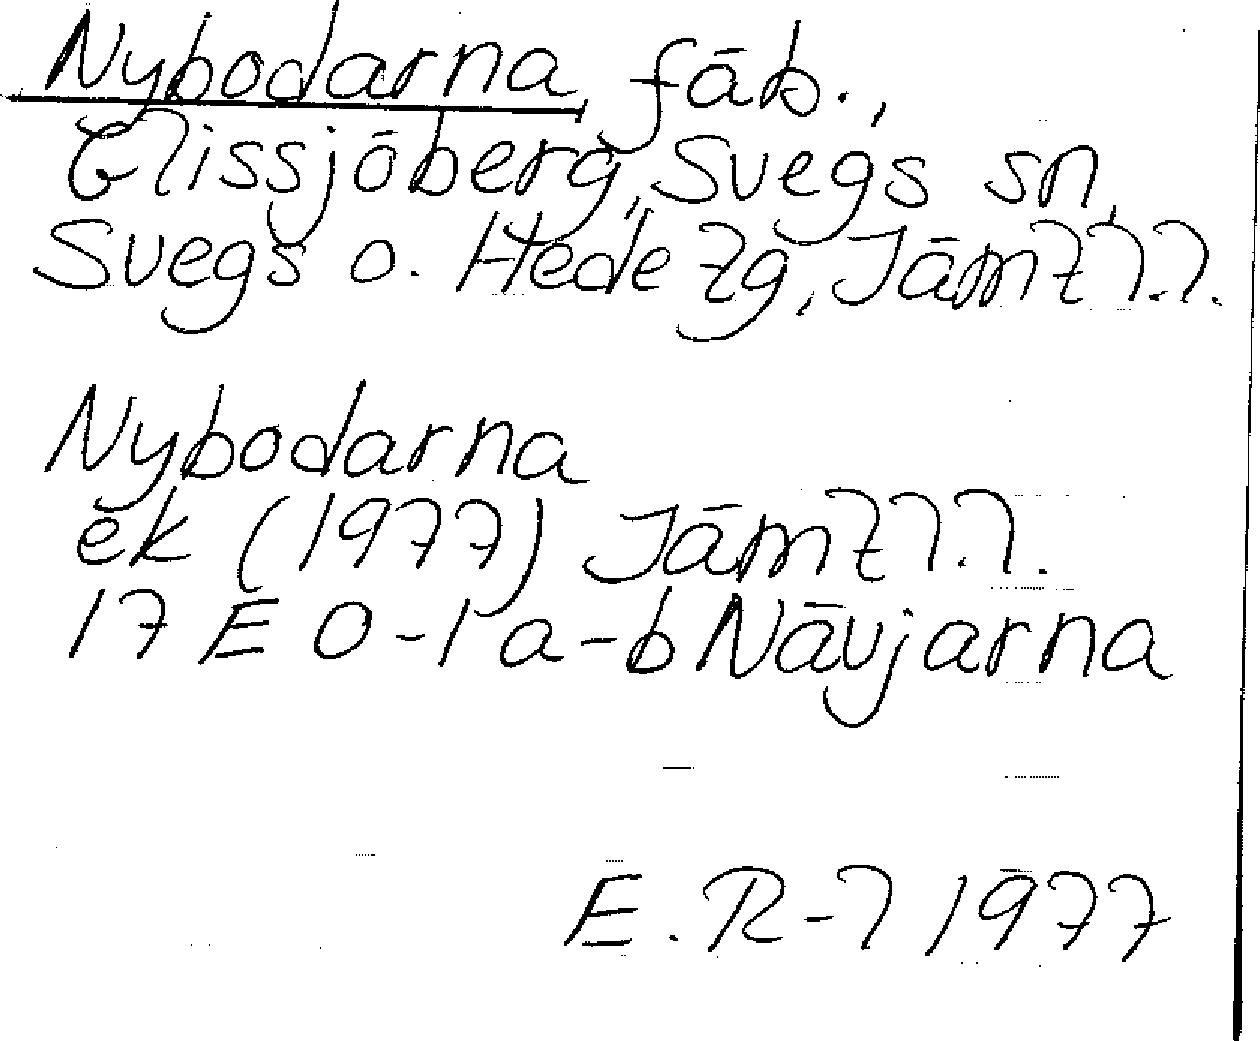 Nybodarna fäb.,
Glissjöberg, Svegs sn,
Svegs o. Hede tg, Jämtl.l.
Nybodarna
ek (1977) Jämtl.l.
17 E 0-1 a-b Nävjarna
E. R-l 1977